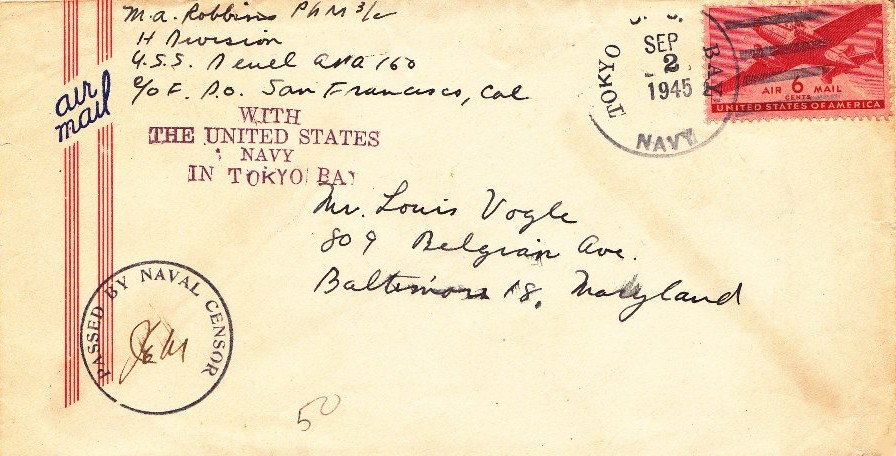 M.A. Robbins PhM 3/c
H Division
U.S.S. Deuel APA 160
c/o F.P.O. San Francisco, Cal
air
mail
WITH
THE UNITED STATES
NAVY
IN TOKYO BAY
U. S.
TOKYO BAY
SEP
2
1945
NAVY
AIR 6 MAIL
CENTS
UNITED STATES OF AMERICA
Mr. Louis Vogle
809 Belgian Ave.
Baltimore 18, Maryland
PASSED BY NAVAL CENSOR
50